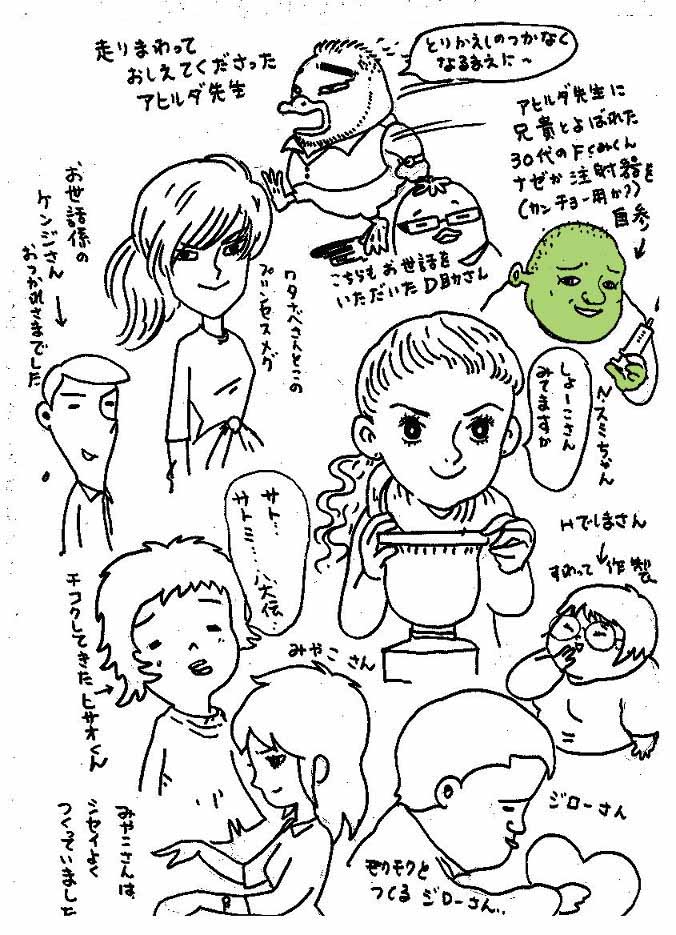 走りまわって
おしえてくださった
アヒルダ先生
とりかえしのつかなく
なるまえに〜
アヒルダ先生に
兄貴とよばれた
30代のFくみくん
ナゼか注射器を
(カンチョー用か?)
自参
お世話係の
ケンジさん
おつかれさまでした
ワタナベさんとこの
プリンセスメグ
こちらもお世話を
いただいたD助さん
しょーこさん
みてますか
Nスミちゃん
サト…
サトミ……八犬伝…
Hでしまさん
すわって作製
チコクしてきたヒサオくん
みやこさん
みやこさんは、
シセイよく
つくっていました
ジローさん
モクモクと
つくるジローさん..